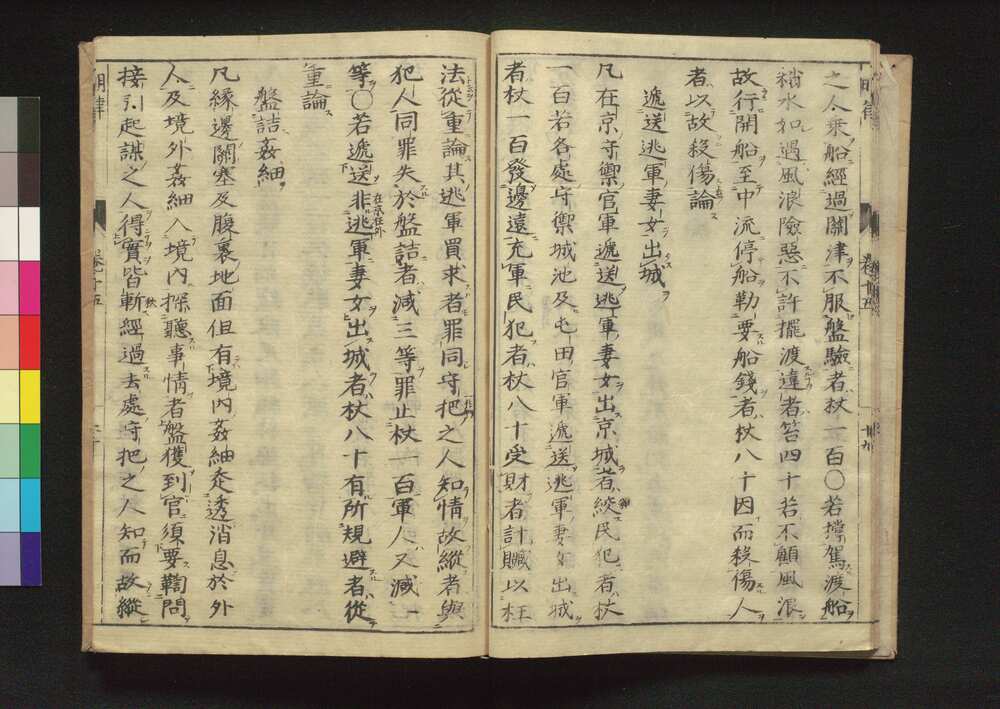 之人乘船經過關津不服盤驗者杖一百〇若撐駕渡船
稍水如遇風浪險惡不許擺渡違者笞四十若不顧風浪
故行開船至中流停船勒要船錢者杖八十因而殺傷人
者以故殺傷論
遞送逃軍妻女出城
凡在京守禦官軍遞送逃軍妻女出京城者絞民犯者杖
一百若各處守禦城池及屯田官軍遞送逃軍妻女出城
者杖一百發邊遠充軍民犯者杖八十受財者計贓以枉
法從重論其逃軍買求者罪同守把之人知情故縱者與
犯人同罪失於盤詰者減三等罪止杖一百軍人又減一
等〇若遞送非逃軍妻女出城者杖八十有所規避者從
重論
盤詰奸細
凡緣邊關塞及腹裏地面但有境內奸細走透消息於外
人及境外奸細入境內探聽事情者盤獲到官須要鞫問
接引起謀之人得實皆斬經過去處守把之人知而故縱
明律
卷十五